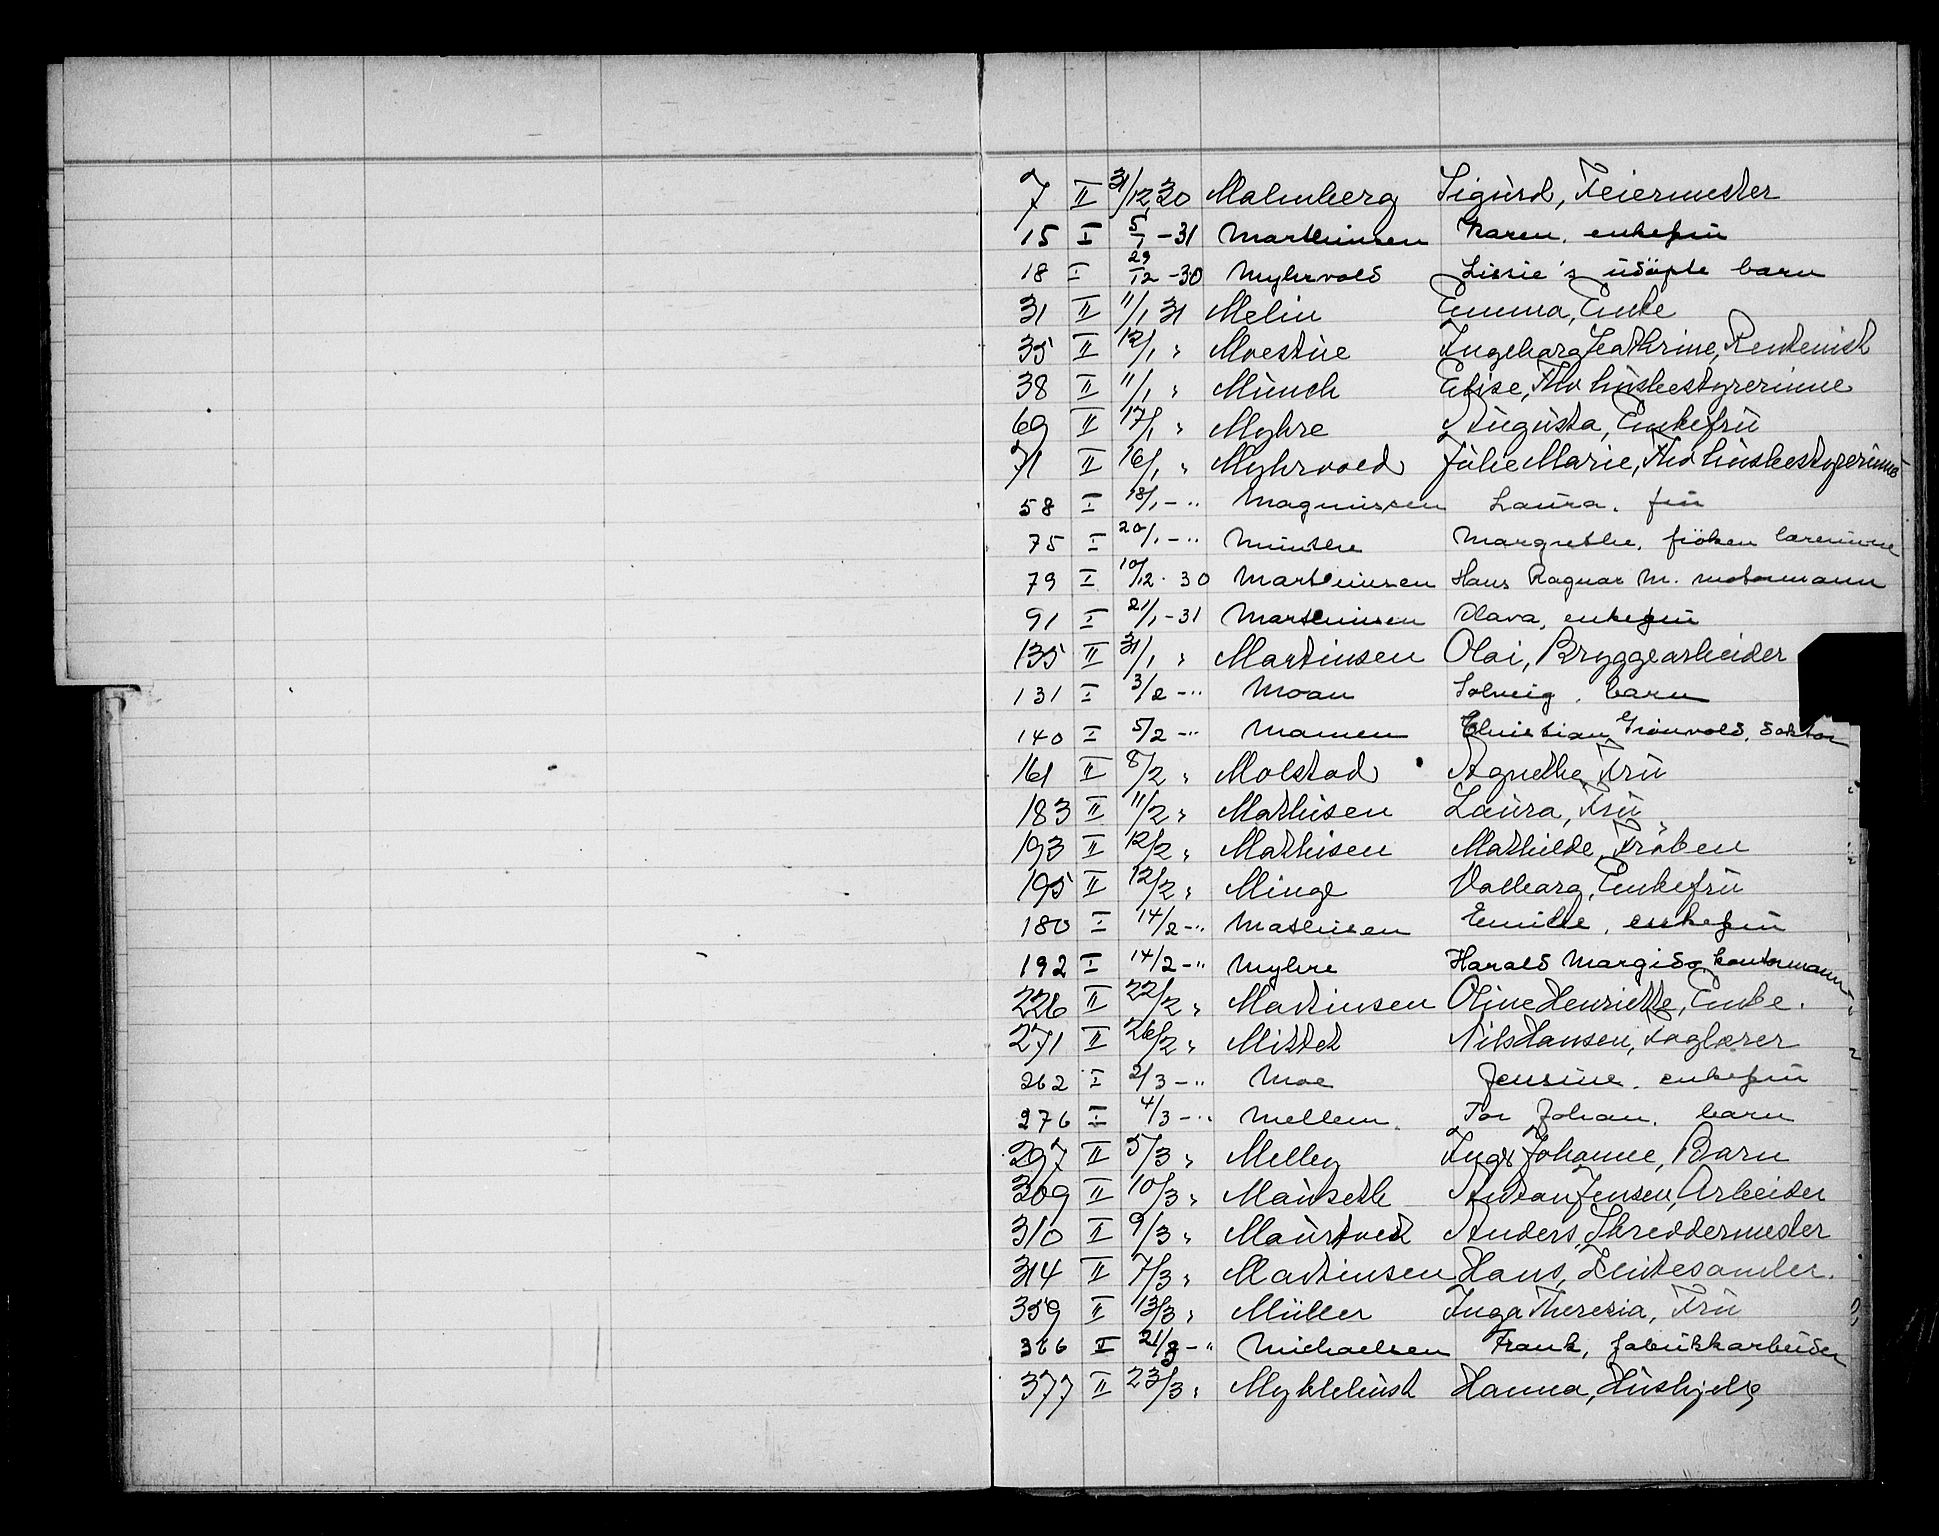 7 II 31/12 30 Malmberg Sigurd, Feiermester
15 I 5/1 -31 Marthinsen Karen, enkefru
18 I 29/12 -30 Myhrvold Lissie's udöpte barn
31 II 11/1 31 Melin Emma, Enke
35 II 12/1 " Moestue Ingeborg Cathrine, Rentenist
38 II 11/1 " Münch Elise, Fhv husbestyrerinne
69 II 17/1 " Myhre Augusta, Enkefru
71 II 16/1 " Myhrvold Julie Marie, Fhv husbestyrerinne
58 I 18/1 - " Magnussen Laura, fru
75 I 20/1 - " Munthe Margrethe, fröken lærerinne
79 I 10/12 - 30 Marthinsen Hans Ragnar M. motormann
91 I 21/1 -31 Marthinsen Olava, enkefru
135 II 31/1 " Martinsen Olai, Bryggearbeider
131 I 3/2 - " Moan Solveig, barn
140 I 5/2 - " Mamen Christian Grönvold, doktor
161 II 8/2 " Molstad Agnethe, Fru
183 II 11/2 " Mathisen Laura, Fru
193 II 12/2 " Mathisen Mathilde, Fröken
195 II 12/2 " Minge Valborg, Enkefru
180 I 14/2 - " Mathisen Emilie, enkefru
192 I 14/2 - " Myhre Harald Margido, kontormann
226 II 22/2 " Martinsen Oline Henriette, Enke.
271 II 26/2 " Mittet Nils Hansen, Faglærer
262 I 2/3 - " Moe Jensine, enkefru
276 I 4/3 - " Mellem Tor Johan, barn
297 II 5/3 " Melley Johanne, Barn
309 II 10/3 " Mauseth Anton Jensen, Arbeider
310 II 9/3 " Maurtvedt Anders, Skreddermester
314 II 7/3 " Martinsen Hans,
359 II 13/3 " Müller Inga Theresia, Fru
366 I 21/3 - " Michaelsen Frank, fabrikkarbeider
377 II 23/3 " Myklebust Hanna, Hushjelp